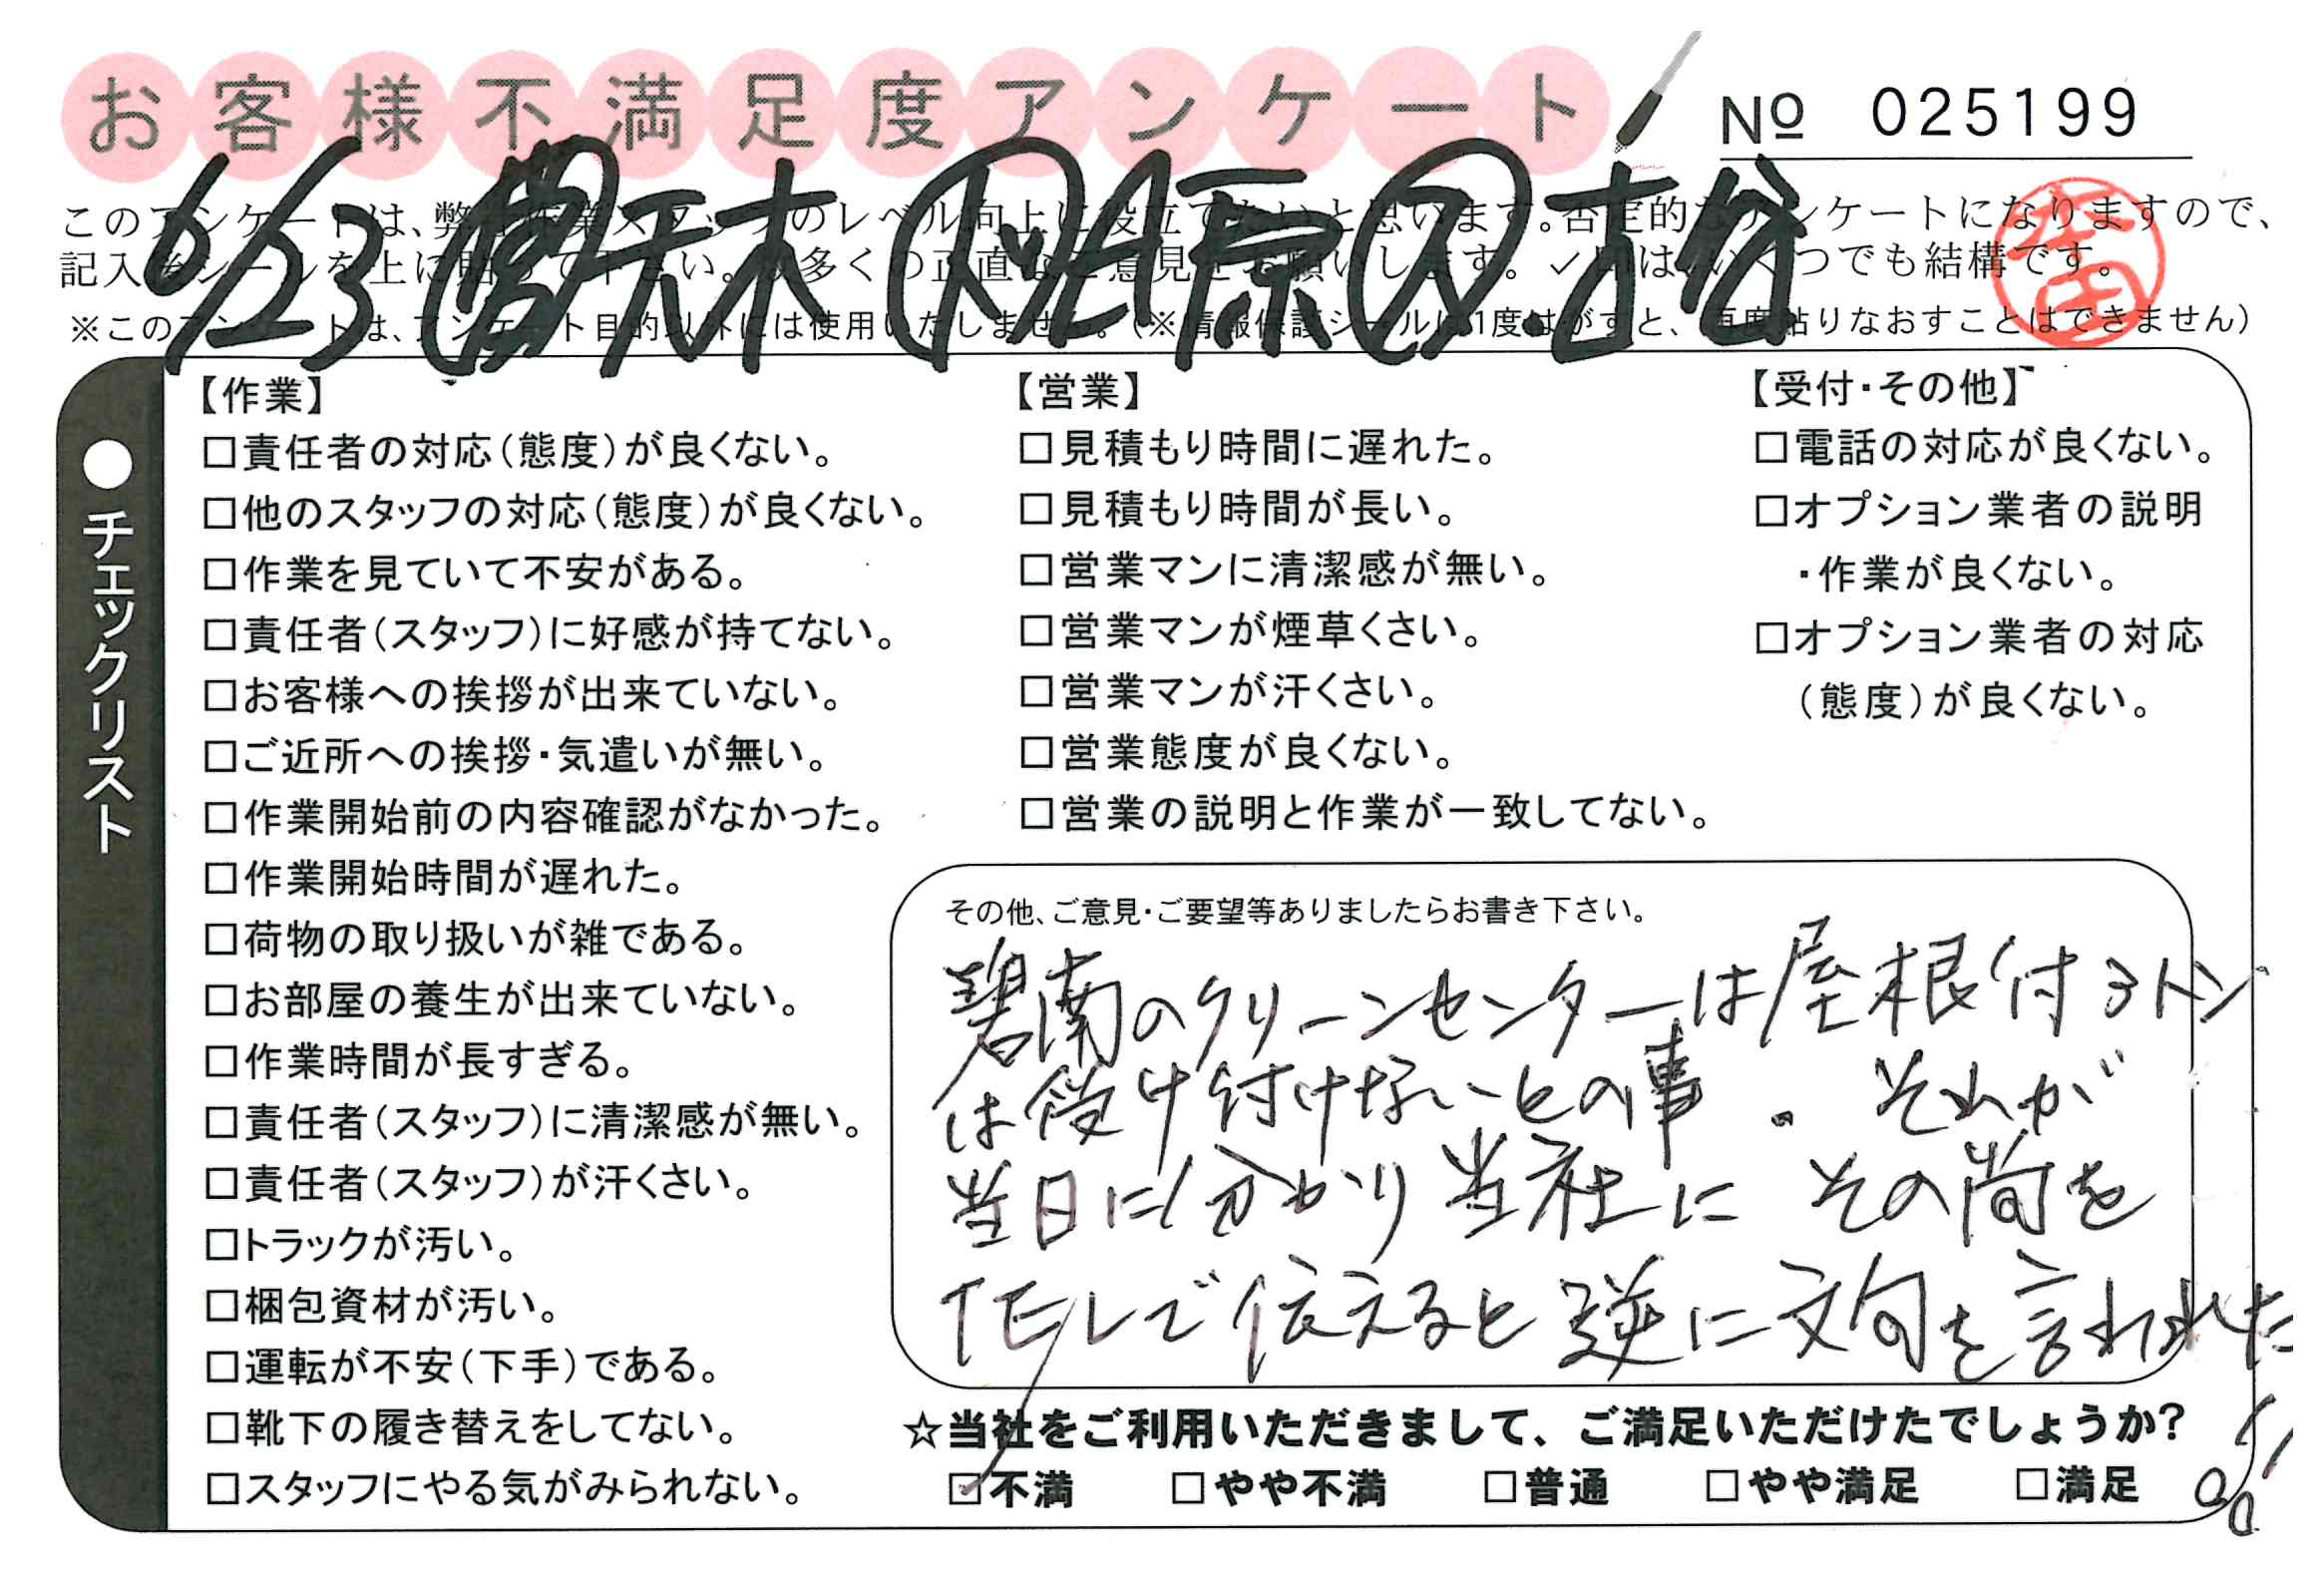 お客様不満足度アンケート
№ 025199
6/23 営 天木 ト 松原 ス.古谷
このアンケートは、弊社作業スタッフのレベル向上に役立てたいと思います。否定的なアンケートになりますので、
記入後シールを上に貼って下さい。数多くの正直なご意見をお願いします。✓印はいくつでも結構です。
※このアンケートは、アンケート目的以外には使用いたしません。(※情報保護シールは1度はがすと、再度貼りなおすことはできません)
●チェックリスト
【作業】
□責任者の対応(態度)が良くない。
□他のスタッフの対応(態度)が良くない。
□作業を見ていて不安がある。
□責任者(スタッフ)に好感が持てない。
□お客様への挨拶が出来ていない。
□ご近所への挨拶・気遣いが無い。
□作業開始前の内容確認がなかった。
□作業開始時間が遅れた。
□荷物の取り扱いが雑である。
□お部屋の養生が出来ていない。
□作業時間が長すぎる。
□責任者(スタッフ)に清潔感が無い。
□責任者(スタッフ)が汗くさい。
□トラックが汚い。
□梱包資材が汚い。
□運転が不安(下手)である。
□靴下の履き替えをしてない。
□スタッフにやる気がみられない。
【営業】
□見積もり時間に遅れた。
□見積もり時間が長い。
□営業マンに清潔感が無い。
□営業マンが煙草くさい。
□営業マンが汗くさい。
□営業態度が良くない。
□営業の説明と作業が一致してない。
【受付・その他】
□電話の対応が良くない。
□オプション業者の説明
・作業が良くない。
□オプション業者の対応
(態度)が良くない。
その他、ご意見・ご要望等ありましたらお書き下さい。
碧南のクリーンセンターは屋根付3トン
は受け付けないとの事。それが
当日に分かり当社にその尚を
TELで伝えると逆に文句を言われた
!!
☆当社をご利用いただきまして、ご満足いただけたでしょうか?
☑不満 □やや不満 □普通 □やや満足 □満足